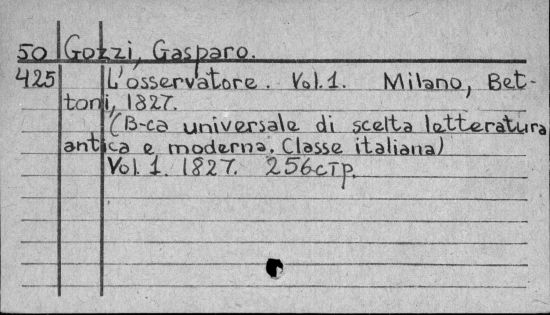 50 Gozzi, Gasparo.
425 L'osservatore. Vol. 1. Milano, Bet-
toni, 1827.
(B-ca universale di scelta letteratura
antica e moderna. Classe italiana)
Vol. 1. 1827. 256стр.